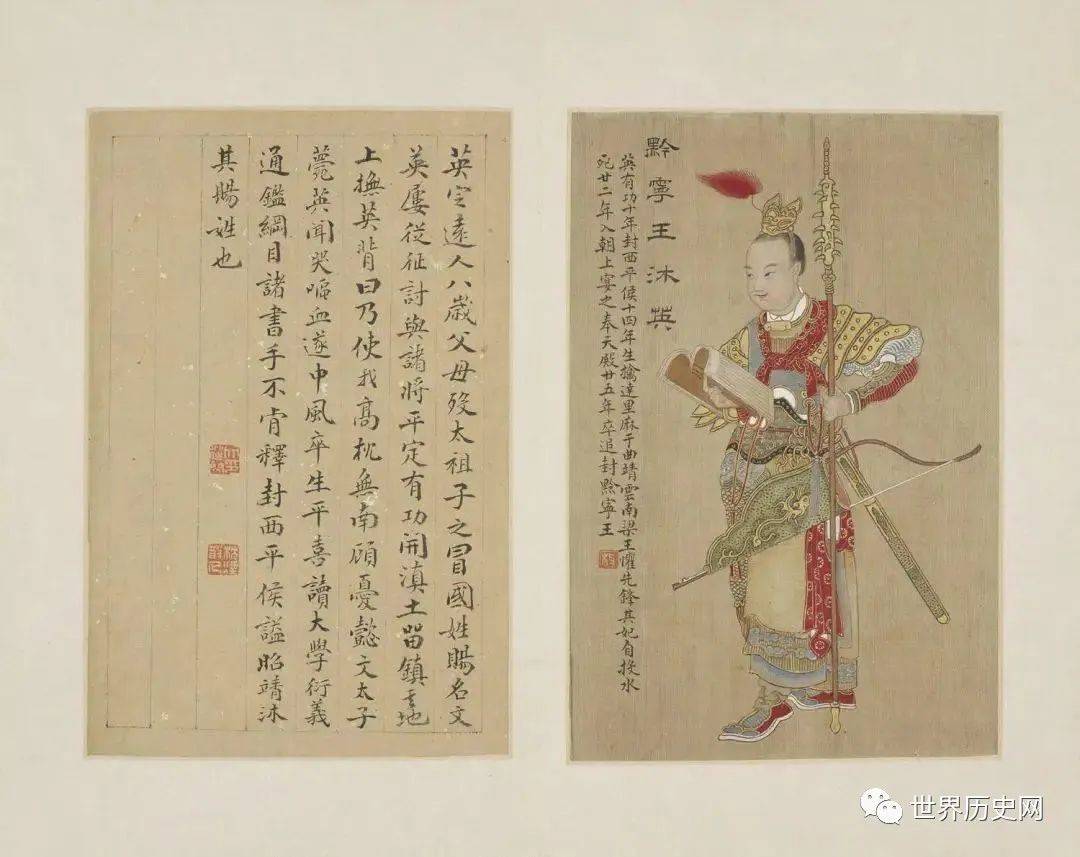 黔寧王沐英
英有功十年封西平侯十四年生擒達里麻于曲靖雲南梁王懼先鋒其妃自投水
死廿二年入朝上宴之奉天殿廿五年卒追封黔寧王
英定遠人八歲父母歿太祖子之冒國姓賜名文
英屢從征討與諸將平定有功開滇土留鎮其地
上撫英背曰乃使我高枕無南顧憂懿文太子
薨英聞哭嘔血遂中風卒生平喜讀大學衍義
通鑑綱目諸書手不肯釋封西平侯諡昭靖沐
其賜姓也
世界历史网